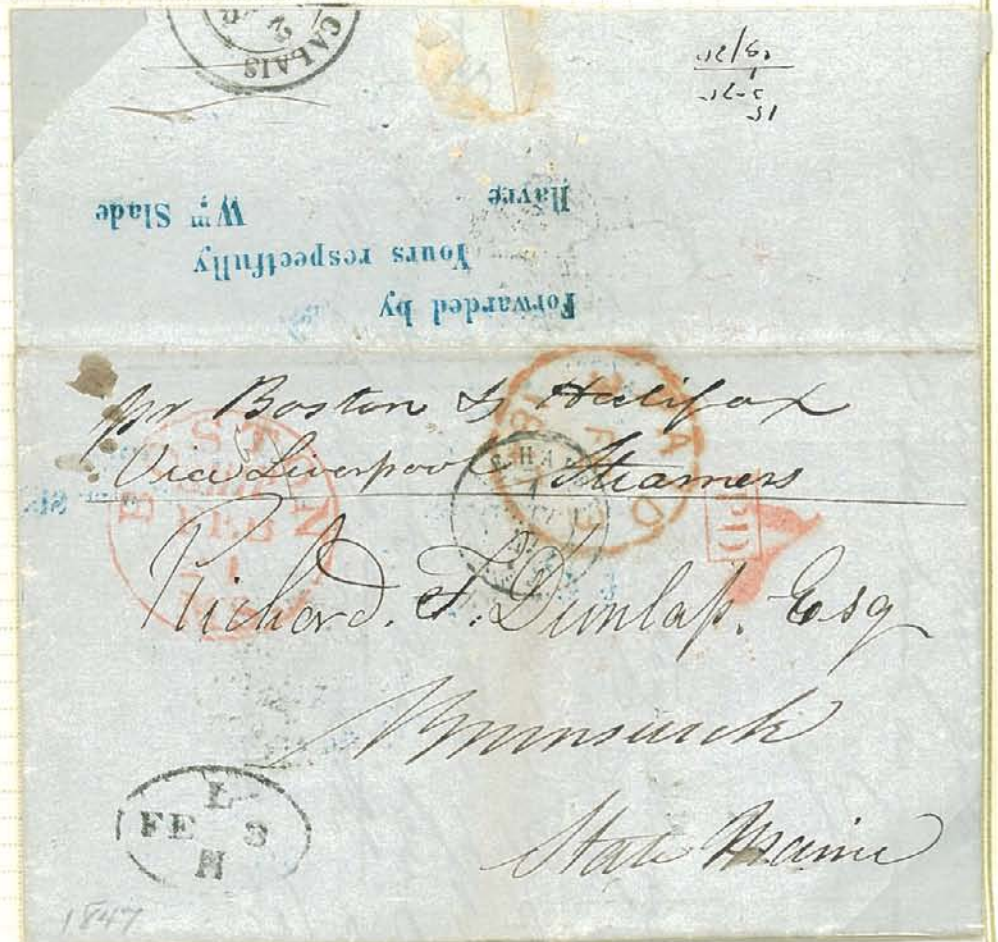 CALAIS
2
Forwarded by
Yours respectfully
Havre Wm Slade
pr Boston & Halifax
Via Liverpool Steamers
BOSTON
SHIP
FEB
21
MS
PAID
PD
7
Richard. T. Dunlap. Esq
Brunswick
State Maine
L
FE 3
H
1847